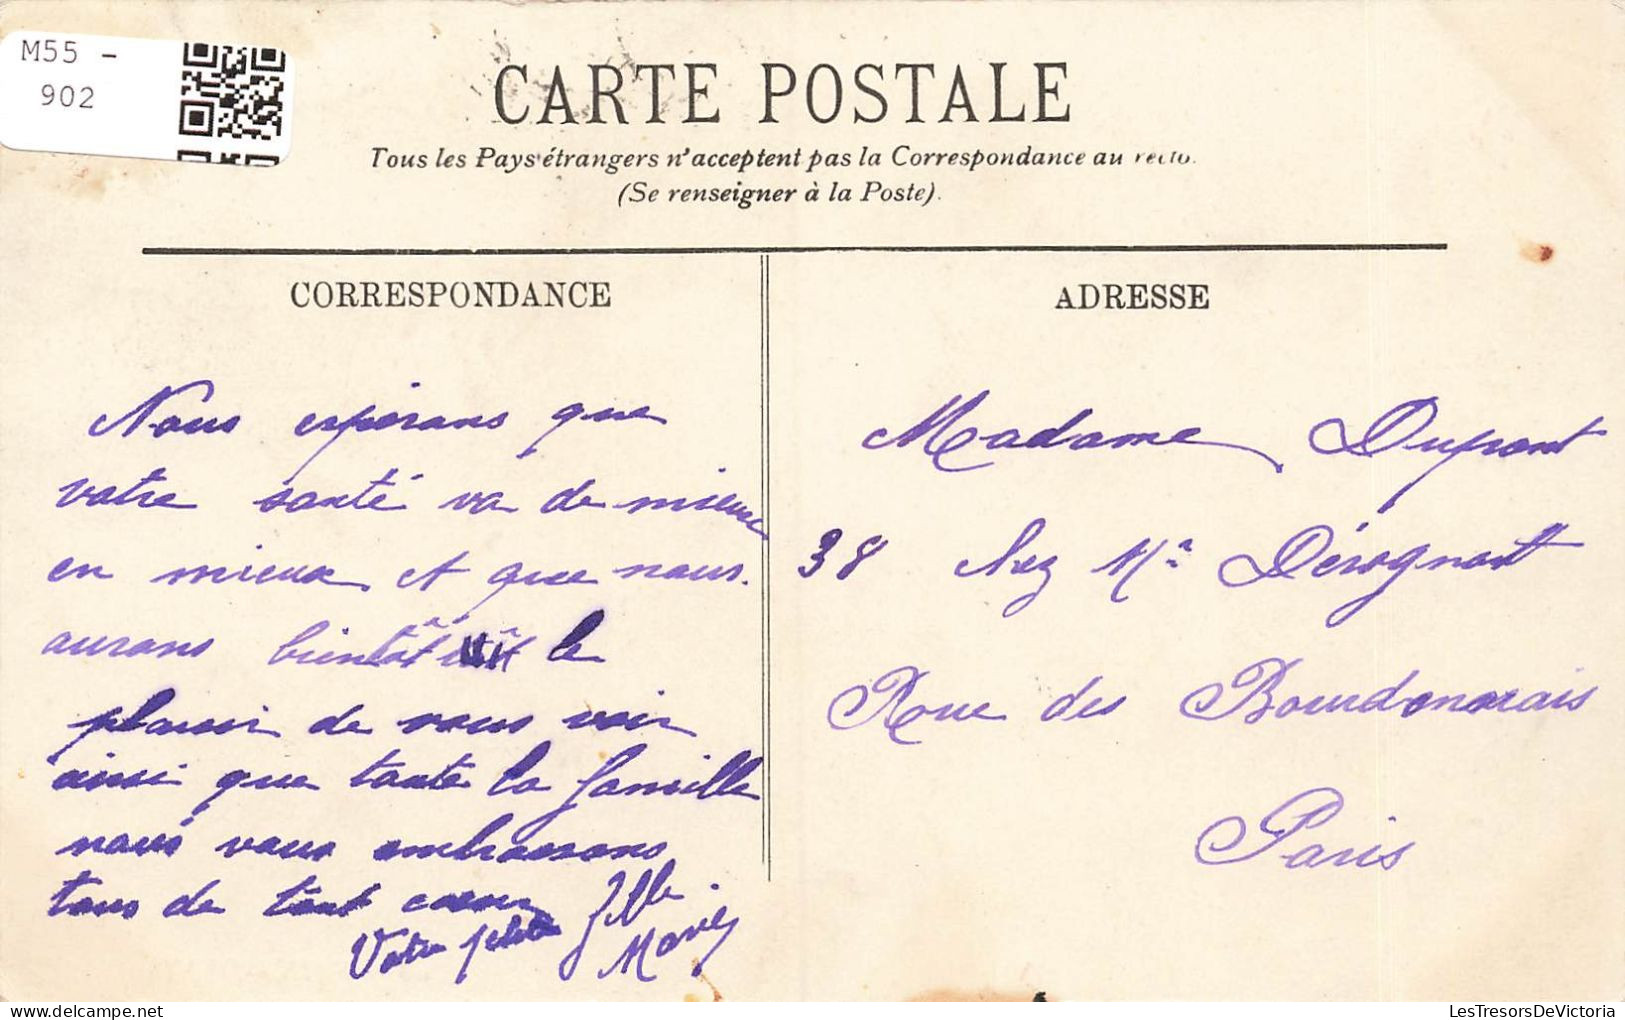 M55 -
902
CARTE POSTALE
Tous les Pays étrangers n'acceptent pas la Correspondance au recto.
(Se renseigner à la Poste).
CORRESPONDANCE
Nous espérons que
votre santé va de mieux
en mieux et que nous
aurons bientôt le
plaisir de vous voir
ainsi que toute la famille
nous vous embrassons
tous de tout coeur
Votre petite fille
Marie
ADRESSE
Madame Dupont
38 chez Mr
Rue des Bourdonnais
Paris
LesTresorsDeVictoria